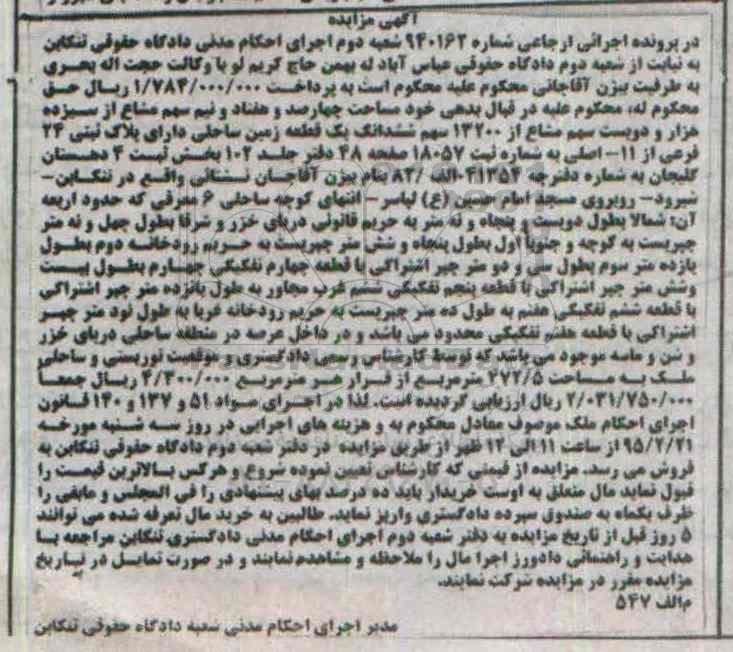 آگهی مزایده
در پرونده اجرائی ارجاعی شماره ۹۴۰۱۶۲ شعبه دوم اجرای احکام مدنی دادگاه حقوقی تنکابن
به نیابت از شعبه دوم دادگاه حقوقی عباس آباد له بهمن حاج کریم لو با وکالت حجت اله بحری
به طرفیت بیژن آقاجانی محکوم علیه محکوم است به پرداخت ۱/۷۸۴/۰۰۰/۰۰۰ ریال حق
محکوم له، محکوم علیه در قبال بدهی خود مساحت چهارصد و هفتاد و نیم سهم مشاع از سیزده
هزار و دویست سهم مشاع از ۱۳۲۰۰ سهم ششدانگ یک قطعه زمین ساحلی دارای پلاک ثبتی ۲۴
فرعی از ۱۱- اصلی به شماره ثبت ۱۸۰۵۷ صفحه ۴۸ دفتر جلد ۱۰۲ بخش ثبت ۴ دهستان
گلیجان به شماره دفترچه ۴۱۲۵۴-الف/۸۲ بنام بیژن آقاجان نشتائی واقع در تنکابن-
شیرود- روبروی مسجد امام حسین (ع) لپاسر- انتهای کوچه ساحلی ۶ معرفی که حدود اربعه
آن: شمالا بطول دویست و پنجاه و نه متر به حریم قانونی دریای خزر و شرقا بطول چهل و نه متر
چپریست به کوچه و جنوبا اول بطول پنجاه و شش متر چپریست به حریم رودخانه دوم بطول
یازده متر سوم بطول سی و دو متر چپر اشتراکی با قطعه چهارم تفکیکی چهارم بطول بیست
وشش متر چپر اشتراکی با قطعه پنجم تفکیکی ششم غرب مجاور به طول پانزده متر چپر اشتراکی
با قطعه ششم تفکیکی هفتم به طول ده متر چپریست به حریم رودخانه غربا به طول نود متر چپر
اشتراکی با قطعه هفتم تفکیکی محدود می باشد و در داخل عرصه در منطقه ساحلی دریای خزر
و شن و ماسه موجود می باشد که توسط کارشناس رسمی دادگستری و موقعیت توریستی و ساحلی
ملک به مساحت ۴۷۲/۵ مترمربع از قرار هر مترمربع ۴/۳۰۰/۰۰۰ ریال جمعا
۲/۰۳۱/۷۵۰/۰۰۰ ریال ارزیابی گردیده است. لذا در اجرای مواد ۵۱ و ۱۳۷ و ۱۴۰ قانون
اجرای احکام ملک موصوف معادل محکوم به و هزینه های اجرایی در روز سه شنبه مورخه
۹۵/۲/۲۱ از ساعت ۱۱ الی ۱۲ ظهر از طریق مزایده در دفتر شعبه دوم دادگاه حقوقی تنکابن به
فروش می رسد. مزایده از قیمتی که کارشناس تعیین نموده شروع و هرکس بالاترین قیمت را
قبول نماید مال متعلق به اوست خریدار باید ده درصد بهای پیشنهادی را فی المجلس و مابقی را
ظرف یکماه به صندوق سپرده دادگستری واریز نماید. طالبین به خرید مال تعرفه شده می توانند
۵ روز قبل از تاریخ مزایده به دفتر شعبه دوم اجرای احکام مدنی دادگستری تنکابن مراجعه با
هدایت و راهنمائی دادورز اجرا مال را ملاحظه و مشاهده نمایند و در صورت تمایل در تاریخ
مزایده مقرر در مزایده شرکت نمایند.
م/الف ۵۴۷
مدیر اجرای احکام مدنی شعبه دادگاه حقوقی تنکابن